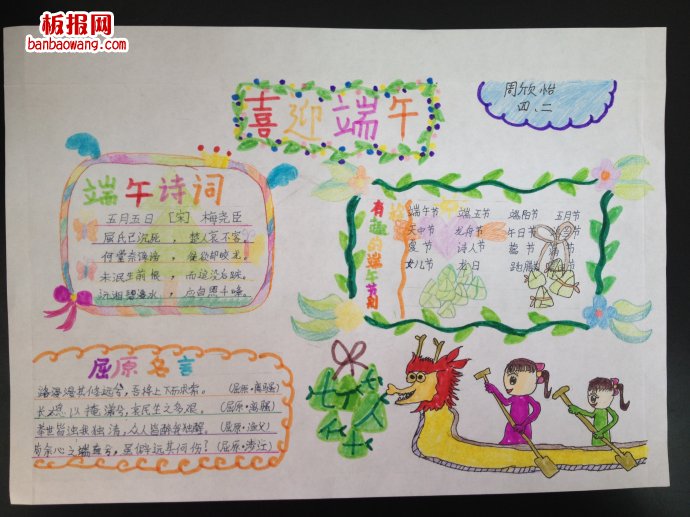 板报网
banbaowang.com
喜迎端午
周欣怡
四、二
端午诗词
五月五日 [宋] 梅尧臣
屈氏已沉死，楚人哀不容。
何尝奈谗谤，徒欲却蛟龙。
未泯生前恨，而追没后踪。
沅湘碧潭水，应自照千峰。
有趣的端午节别
端午节 端五节 端阳节 五月节
天中节 龙舟节 午日节
夏节 诗人节 菖 蒲 节
女儿节
屈原名言
路漫漫其修远兮，吾将上下而求索。 (屈原·离骚)
长太息以掩涕兮，哀民生之多艰。 (屈原·离骚)
举世皆浊我独清，众人皆醉我独醒。 (屈原·渔父)
苟余心之端直兮，虽僻远其何伤？(屈原·涉江)